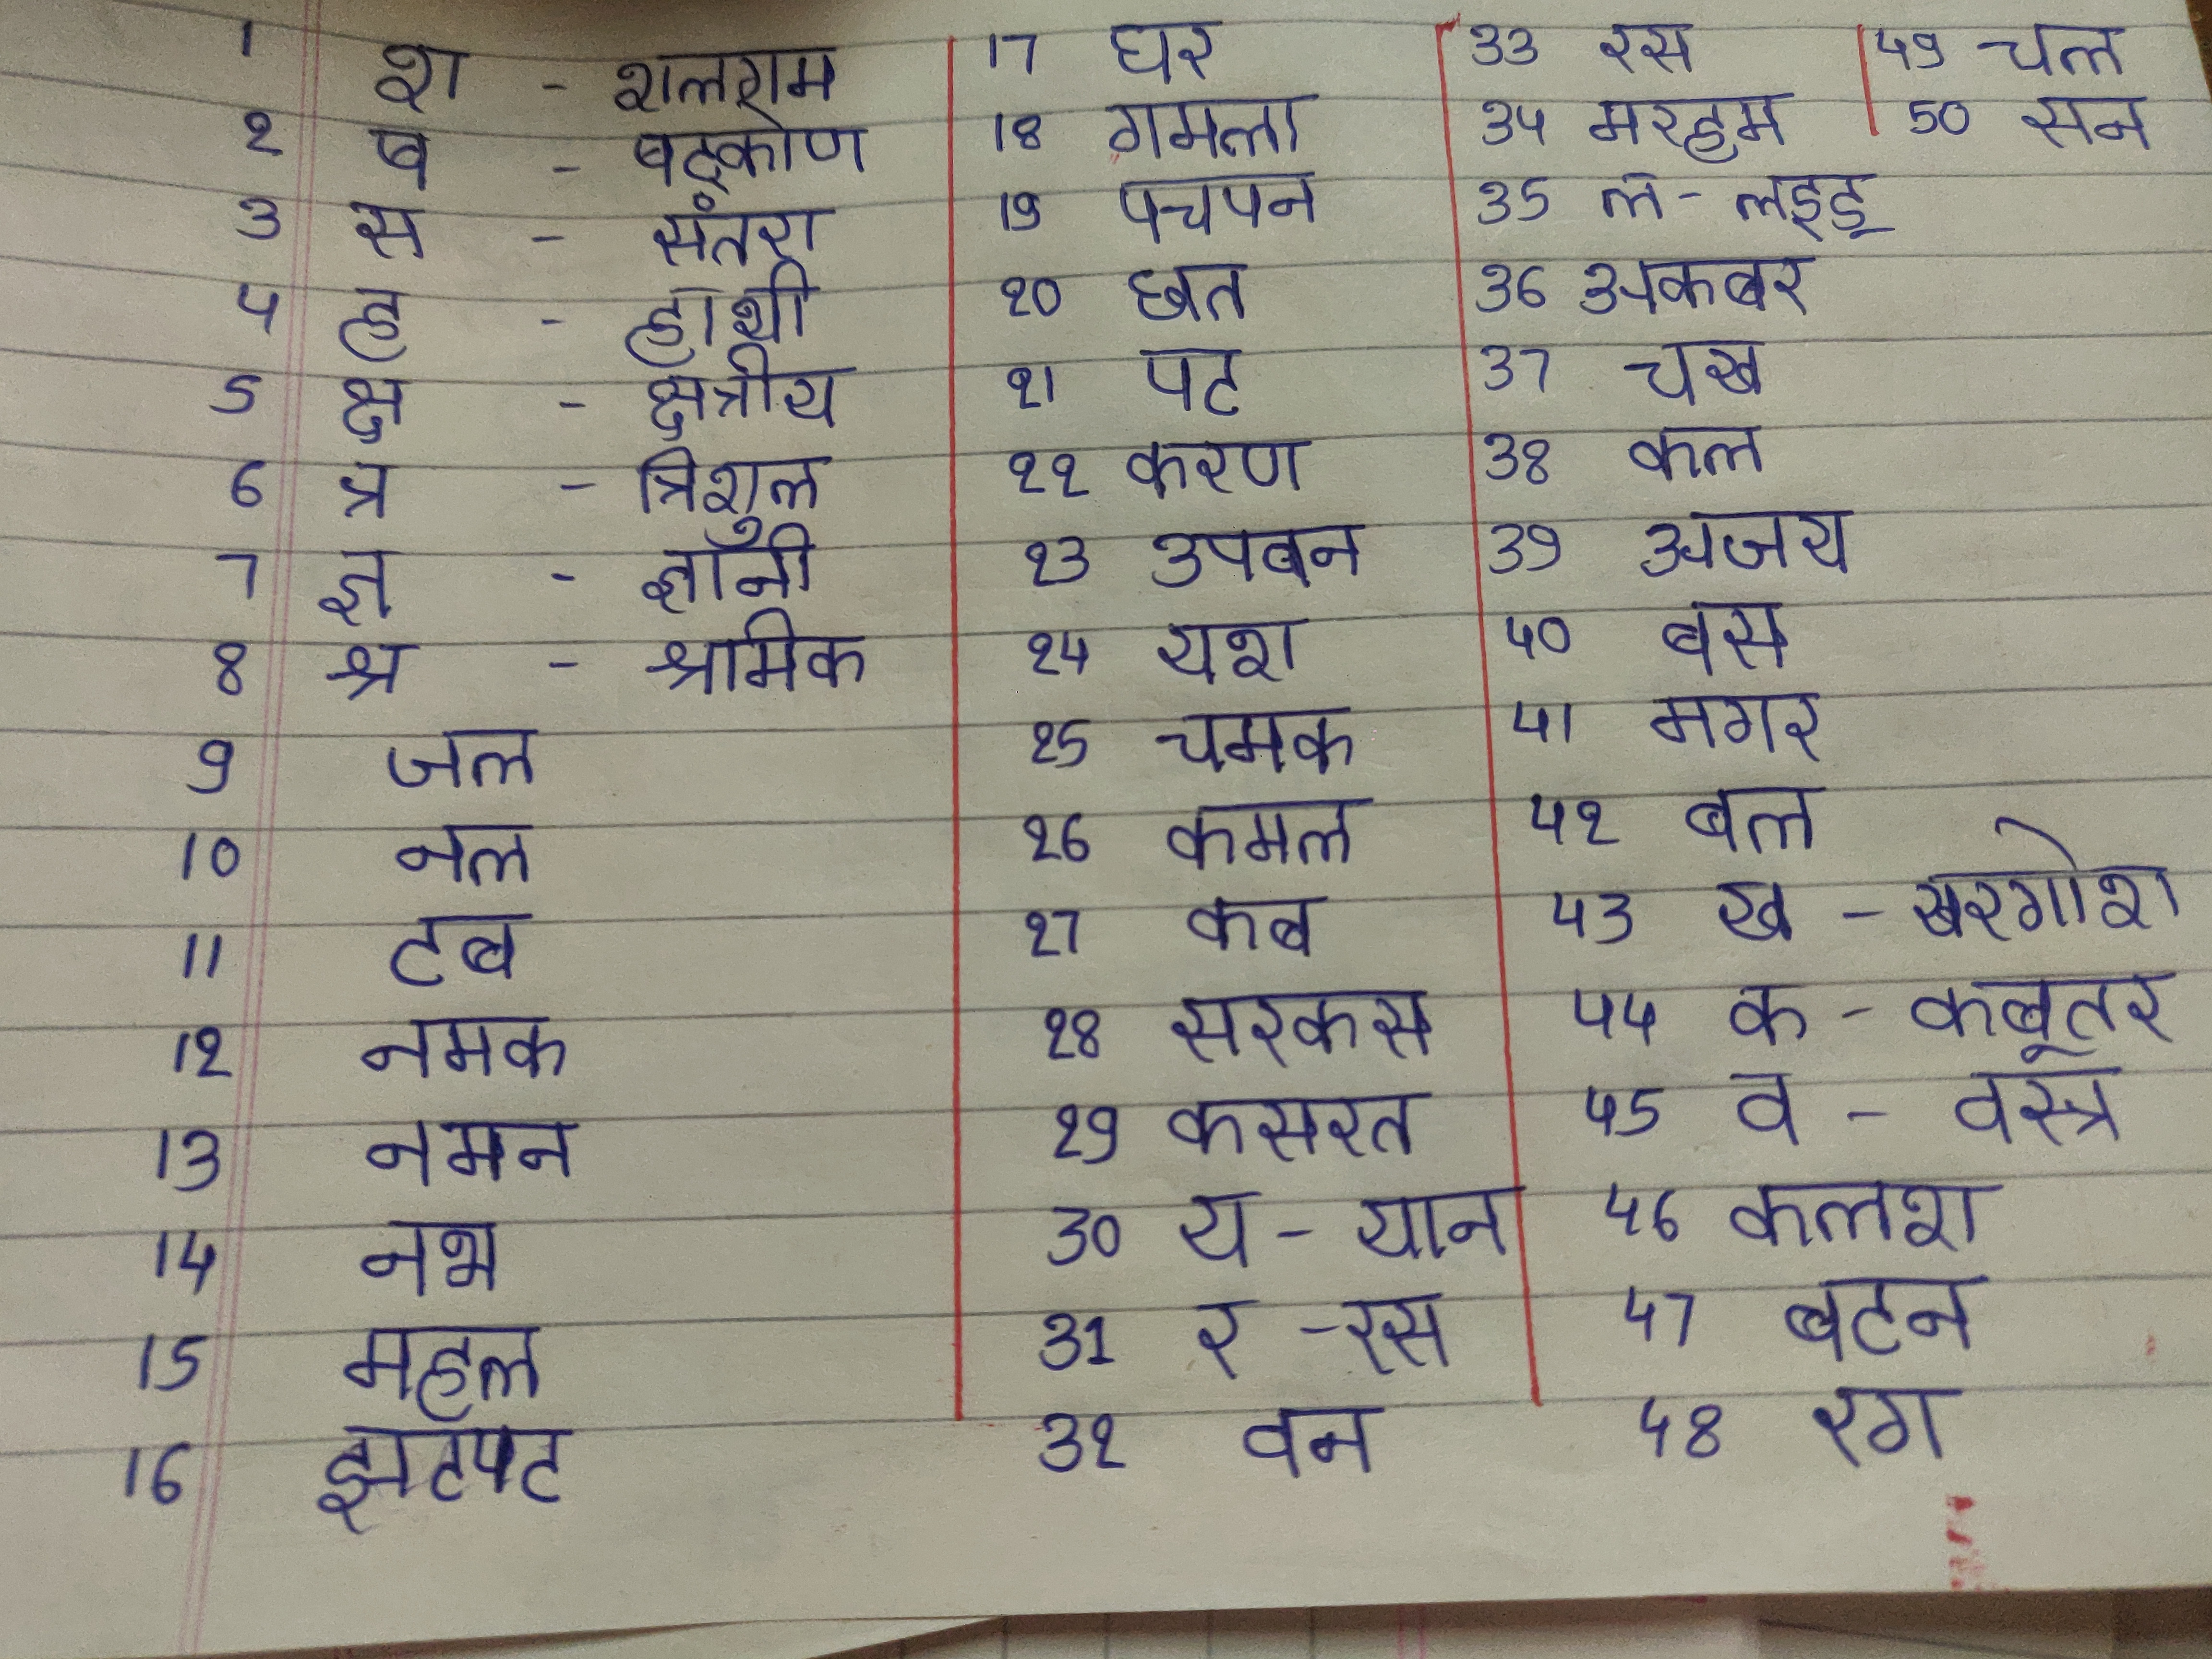 1 श - शलगम
2 ष - षट्कोण
3 स - संतरा
4 ह - हाथी
5 क्ष - क्षत्रीय
6 त्र - त्रिशुल
7 ज्ञ - ज्ञानी
8 श्र - श्रमिक
9 जल
10 नल
11 टब
12 नमक
13 नमन
14 नभ
15 महल
16 झटपट
17 घर
18 गमला
19 पचपन
20 छत
21 पट
22 करण
23 उपबन
24 यश
25 चमक
26 कमल
27 कब
28 सरकस
29 कसरत
30 य - यान
31 र - रस
32 वन
33 रस
34 मरहम
35 ल - लड्डू
36 अकबर
37 चख
38 कल
39 अजय
40 बस
41 मगर
42 बल
43 ख - खरगोश
44 क - कबूतर
45 व - वस्त्र
46 कलश
47 बटन
48 रग
49 चल
50 सन